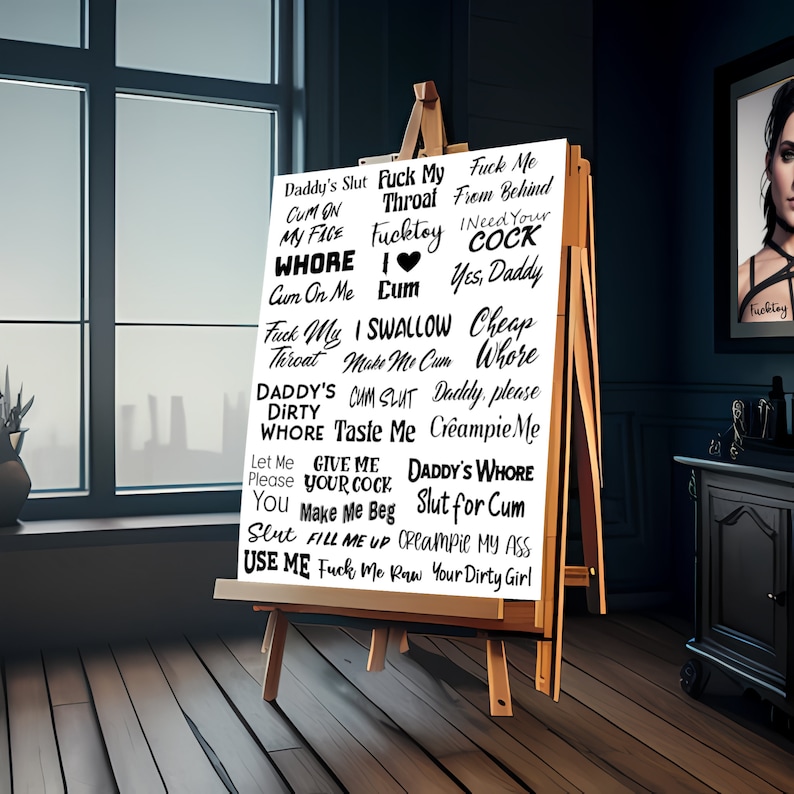 Daddy's Slut
Fuck My
Throat
Fuck Me
From Behind
Cum On
My Face
Fucktoy
I Need Your
COCK
WHORE
I ♥
Cum
Yes, Daddy
Cum On Me
Fuck My
Throat
I SWALLOW
Cheap
Whore
Make Me Cum
DADDY'S
DIRTY
WHORE
CUM SLUT
Daddy, please
Taste Me
Creampie Me
Let Me
Please
You
GIVE ME
YOUR COCK
DADDY'S WHORE
Make Me Beg
Slut for Cum
Slut
FILL ME UP
CREAMPIE MY ASS
USE ME
Fuck Me Raw
Your Dirty Girl
Fucktoy